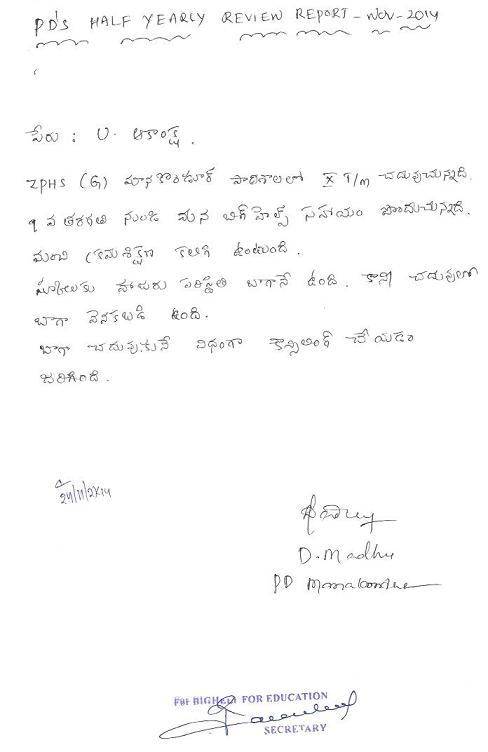 PD'S HALF YEARLY REVIEW REPORT - NOV - 2014
పేరు : U. ఆకాంక్ష .
ZPHS (G) మానకొండూర్ పాఠశాలలో X T/m చదువుచున్నది.
9 వ తరగతి నుండి మన బిగ్ హెల్ప్ సహాయం పొందుచున్నది.
మంచి క్రమశిక్షణ కలిగి ఉంటుంది.
స్కూలుకు హాజరు పరిస్థితి బాగానే ఉంది. కానీ చదువులో
బాగా వెనకబడి ఉంది.
బాగా చదువుకునే విధంగా కౌన్సిలింగ్ చేయడం
జరిగింది.
24/11/2014
D. Madhu
PD
For BIGHELP FOR EDUCATION
SECRETARY